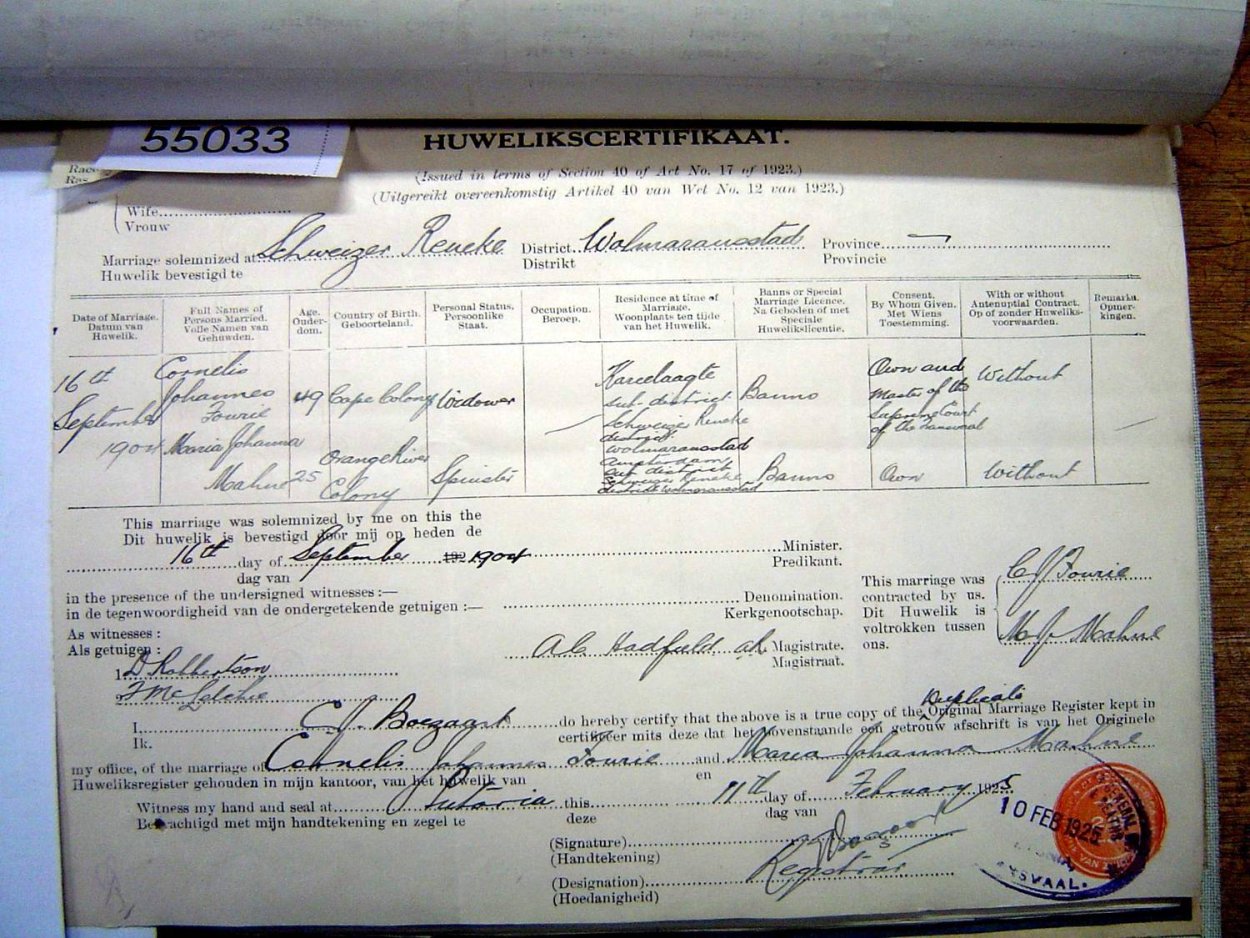 55033
HUWELIKSCERTIFIKAAT.
(Issued in terms of Section 40 of Act No. 17 of 1923.)
(Uitgereikt overeenkomstig Artikel 40 van Wet No. 12 van 1923.)
Race
Ras
Wife
Vrouw
Marriage solemnized at Schweizer Reneke District Wolmaransstad Province
Huwelik bevestigd te Distrikt Provincie
Date of Marriage. Datum van Huwelik.
Full Names of Persons Married. Volle Namen van Gehuwden.
Age. Ouder-dom.
Country of Birth. Geboorteland.
Personal Status. Persoonlike Staat.
Occupation. Beroep.
Residence at time of Marriage. Woonplants ten tijde van het Huwelik.
Banns or Special Marriage Licence. Na Geboden of met Speciale Huwelikslicentie.
Consent, By Whom Given. Met Wiens Toestemming.
With or without Antenuptial Contract. Op of zonder Huweliks-voorwaarden.
Remarks. Opmer-kingen.
16th September 1904
Cornelis Johannes Fourie
49
Cape Colony
Widower
Sub-district Schweizer Reneke district Wolmaransstad
Banns
Own and Master of the Supreme Court of the Transvaal
Without
Maria Johanna Mahne
25
Orange River Colony
Spinster
Amsterdam sub district Schweizer Reneke district Wolmaransstad
Banns
Own
Without
This marriage was solemnized by me on this the
Dit huwelik is bevestigd door mij op heden de
16th day of September 1904
dag van
Minister.
Predikant.
in the presence of the undersigned witnesses:—
in de tegenwoordigheid van de ondergetekende getuigen:—
Denomination.
Kerkgenootschap.
This marriage was contracted by us.
Dit Huwelik is voltrokken tussen ons.
C J Fourie
M J Mahne
As witnesses:
Als getuigen:
A C Hadfield Magistrate.
Magistraat.
1. D Robbertson
2.
I, C J Boezaart do hereby certify that the above is a true copy of the Duplicate Original Marriage Register kept in
Ik. certificeer mits deze dat het bovenstaande een getrouw afschrift is van het Originele
my office, of the marriage of Cornelis Johannes Fourie and Maria Johanna Mahne
Huweliksregister gehouden in mijn kantoor, van het huwelik van en
Witness my hand and seal at Pretoria this 11th day of February 1925
Bekrachtigd met mijn handtekening en zegel te deze dag van
(Signature)
(Handtekening)
(Designation) Registrar
(Hoedanigheid)
10 FEB 1925